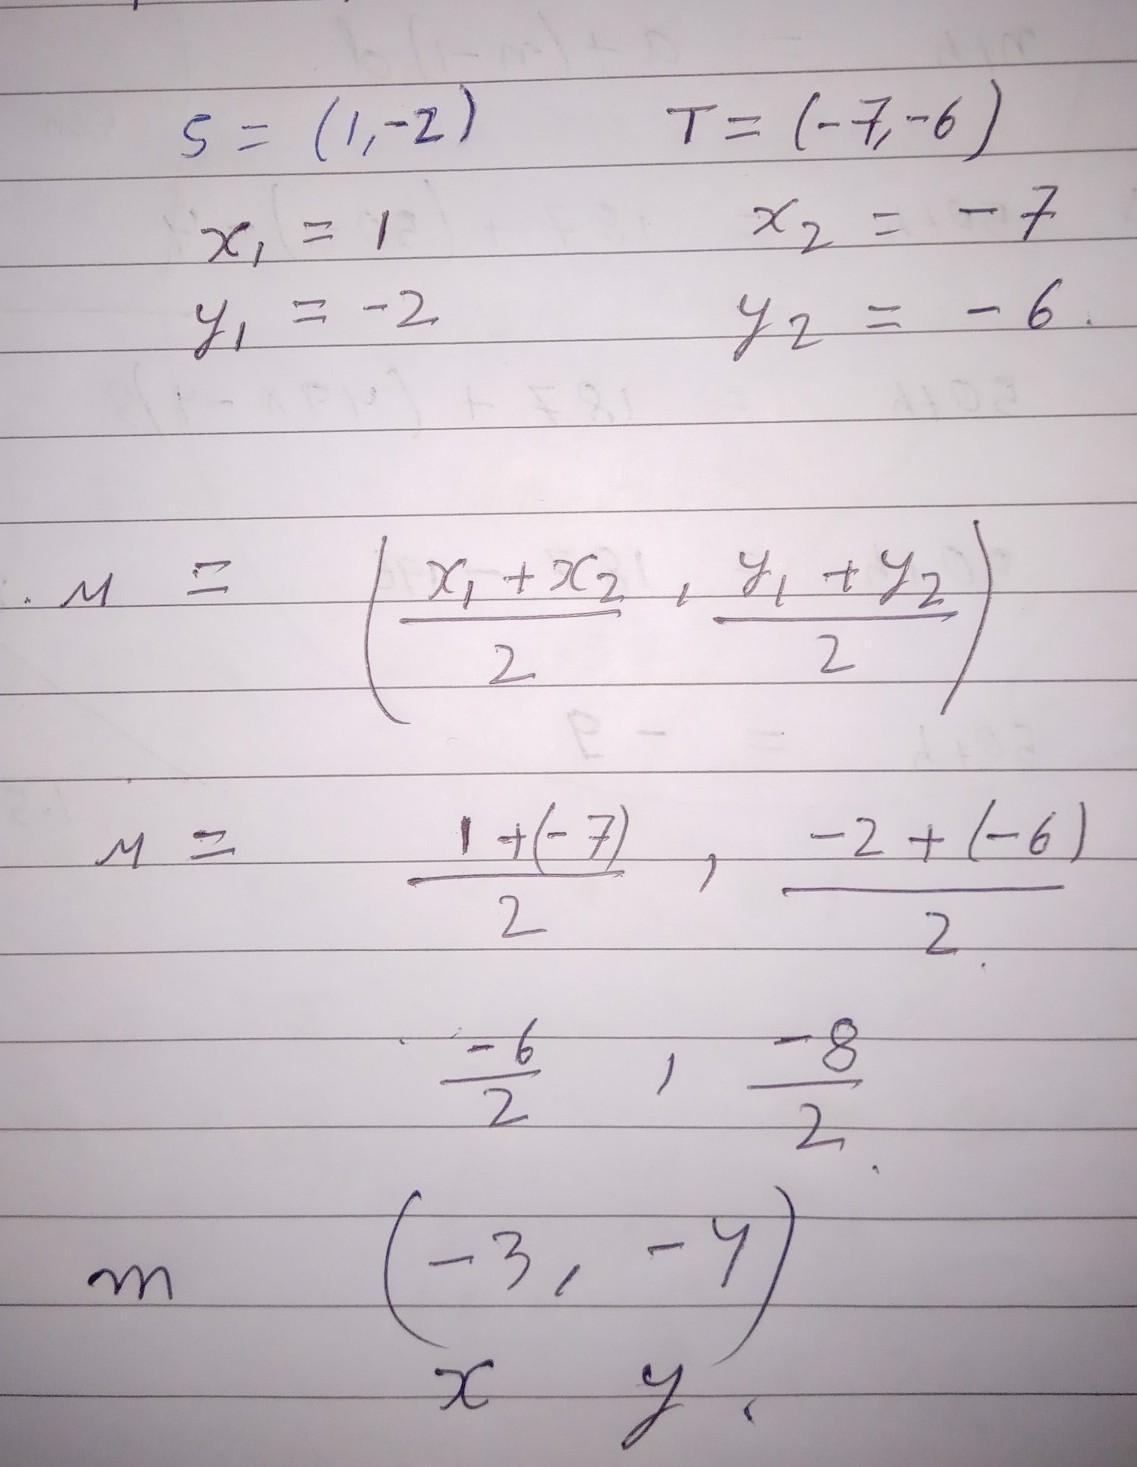 S = (1,-2) T = (-7,-6)
x₁ = 1 x₂ = -7
y₁ = -2 y₂ = -6.
M = (x₁+x₂/2, y₁+y₂/2)
M = 1+(-7)/2, -2+(-6)/2
-6/2, -8/2
m (-3, -4)
x y